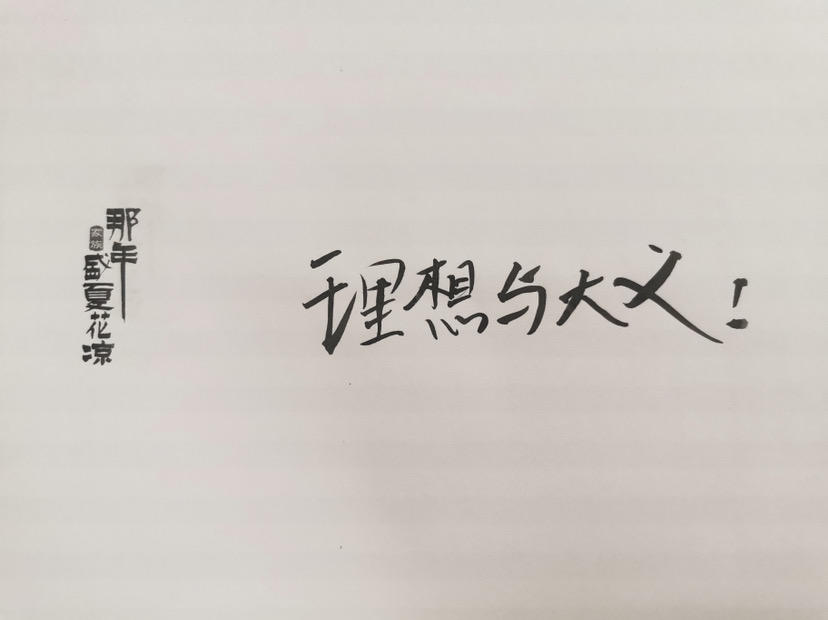 那年
家族
盛夏花凉
理想与大义!